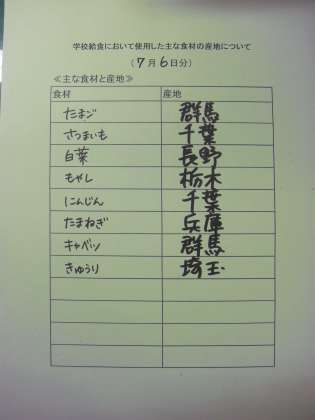 学校給食において使用した主な食材の産地について
(7月6日分)
≪主な食材と産地≫
食材 産地
たまご 群馬
さつまいも 千葉
白菜 長野
もやし 栃木
にんじん 千葉
たまねぎ 兵庫
キャベツ 群馬
きゅうり 埼玉